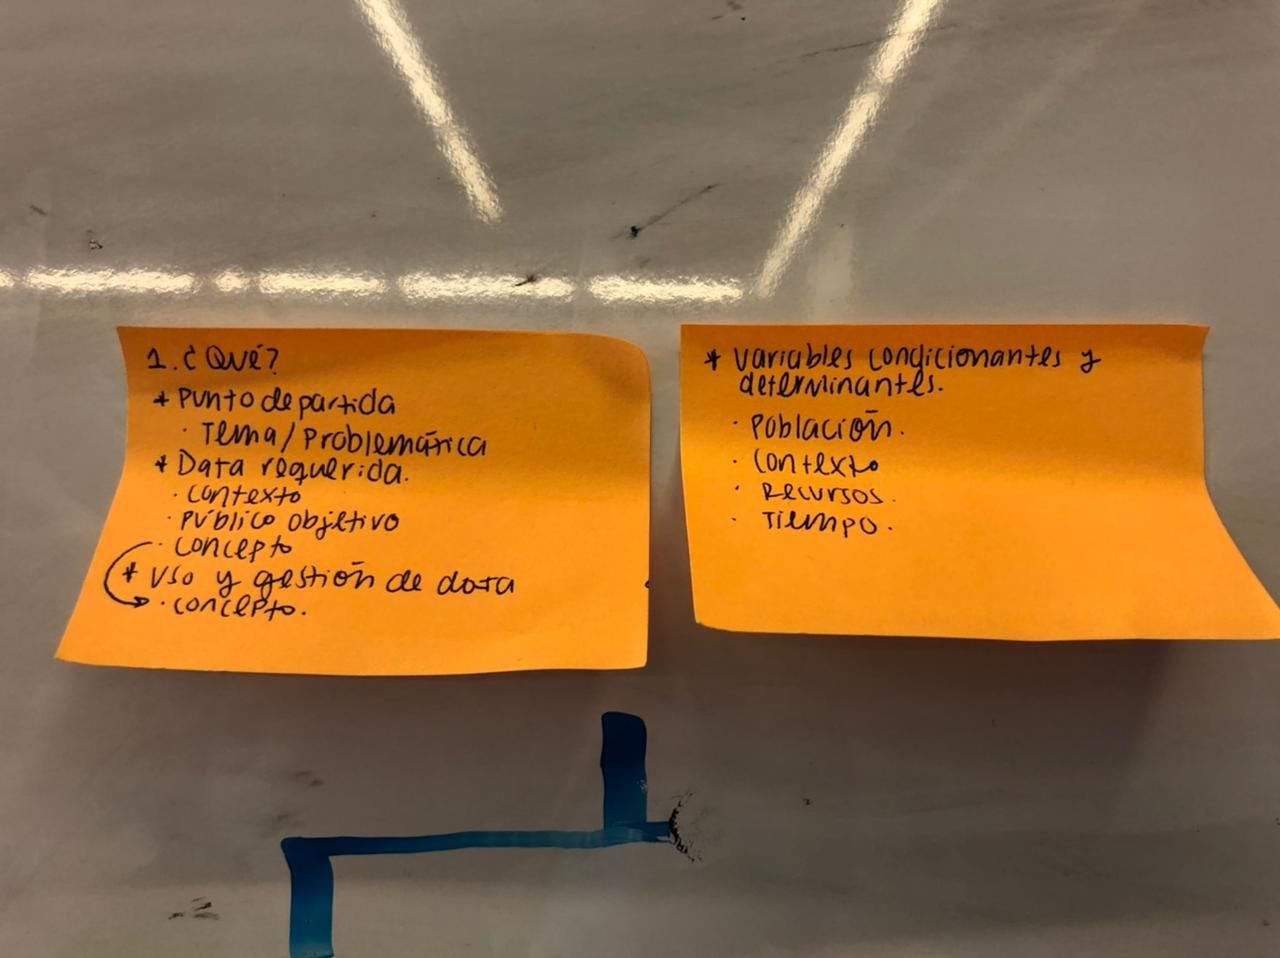 1. ¿Qué?
* Punto de partida
· Tema/Problemática
* Data requerida.
· contexto
· Público objetivo
· concepto
* Uso y gestión de data
· concepto.
* Variables condicionantes y
determinantes.
· Población.
· Contexto
· Recursos.
· Tiempo.